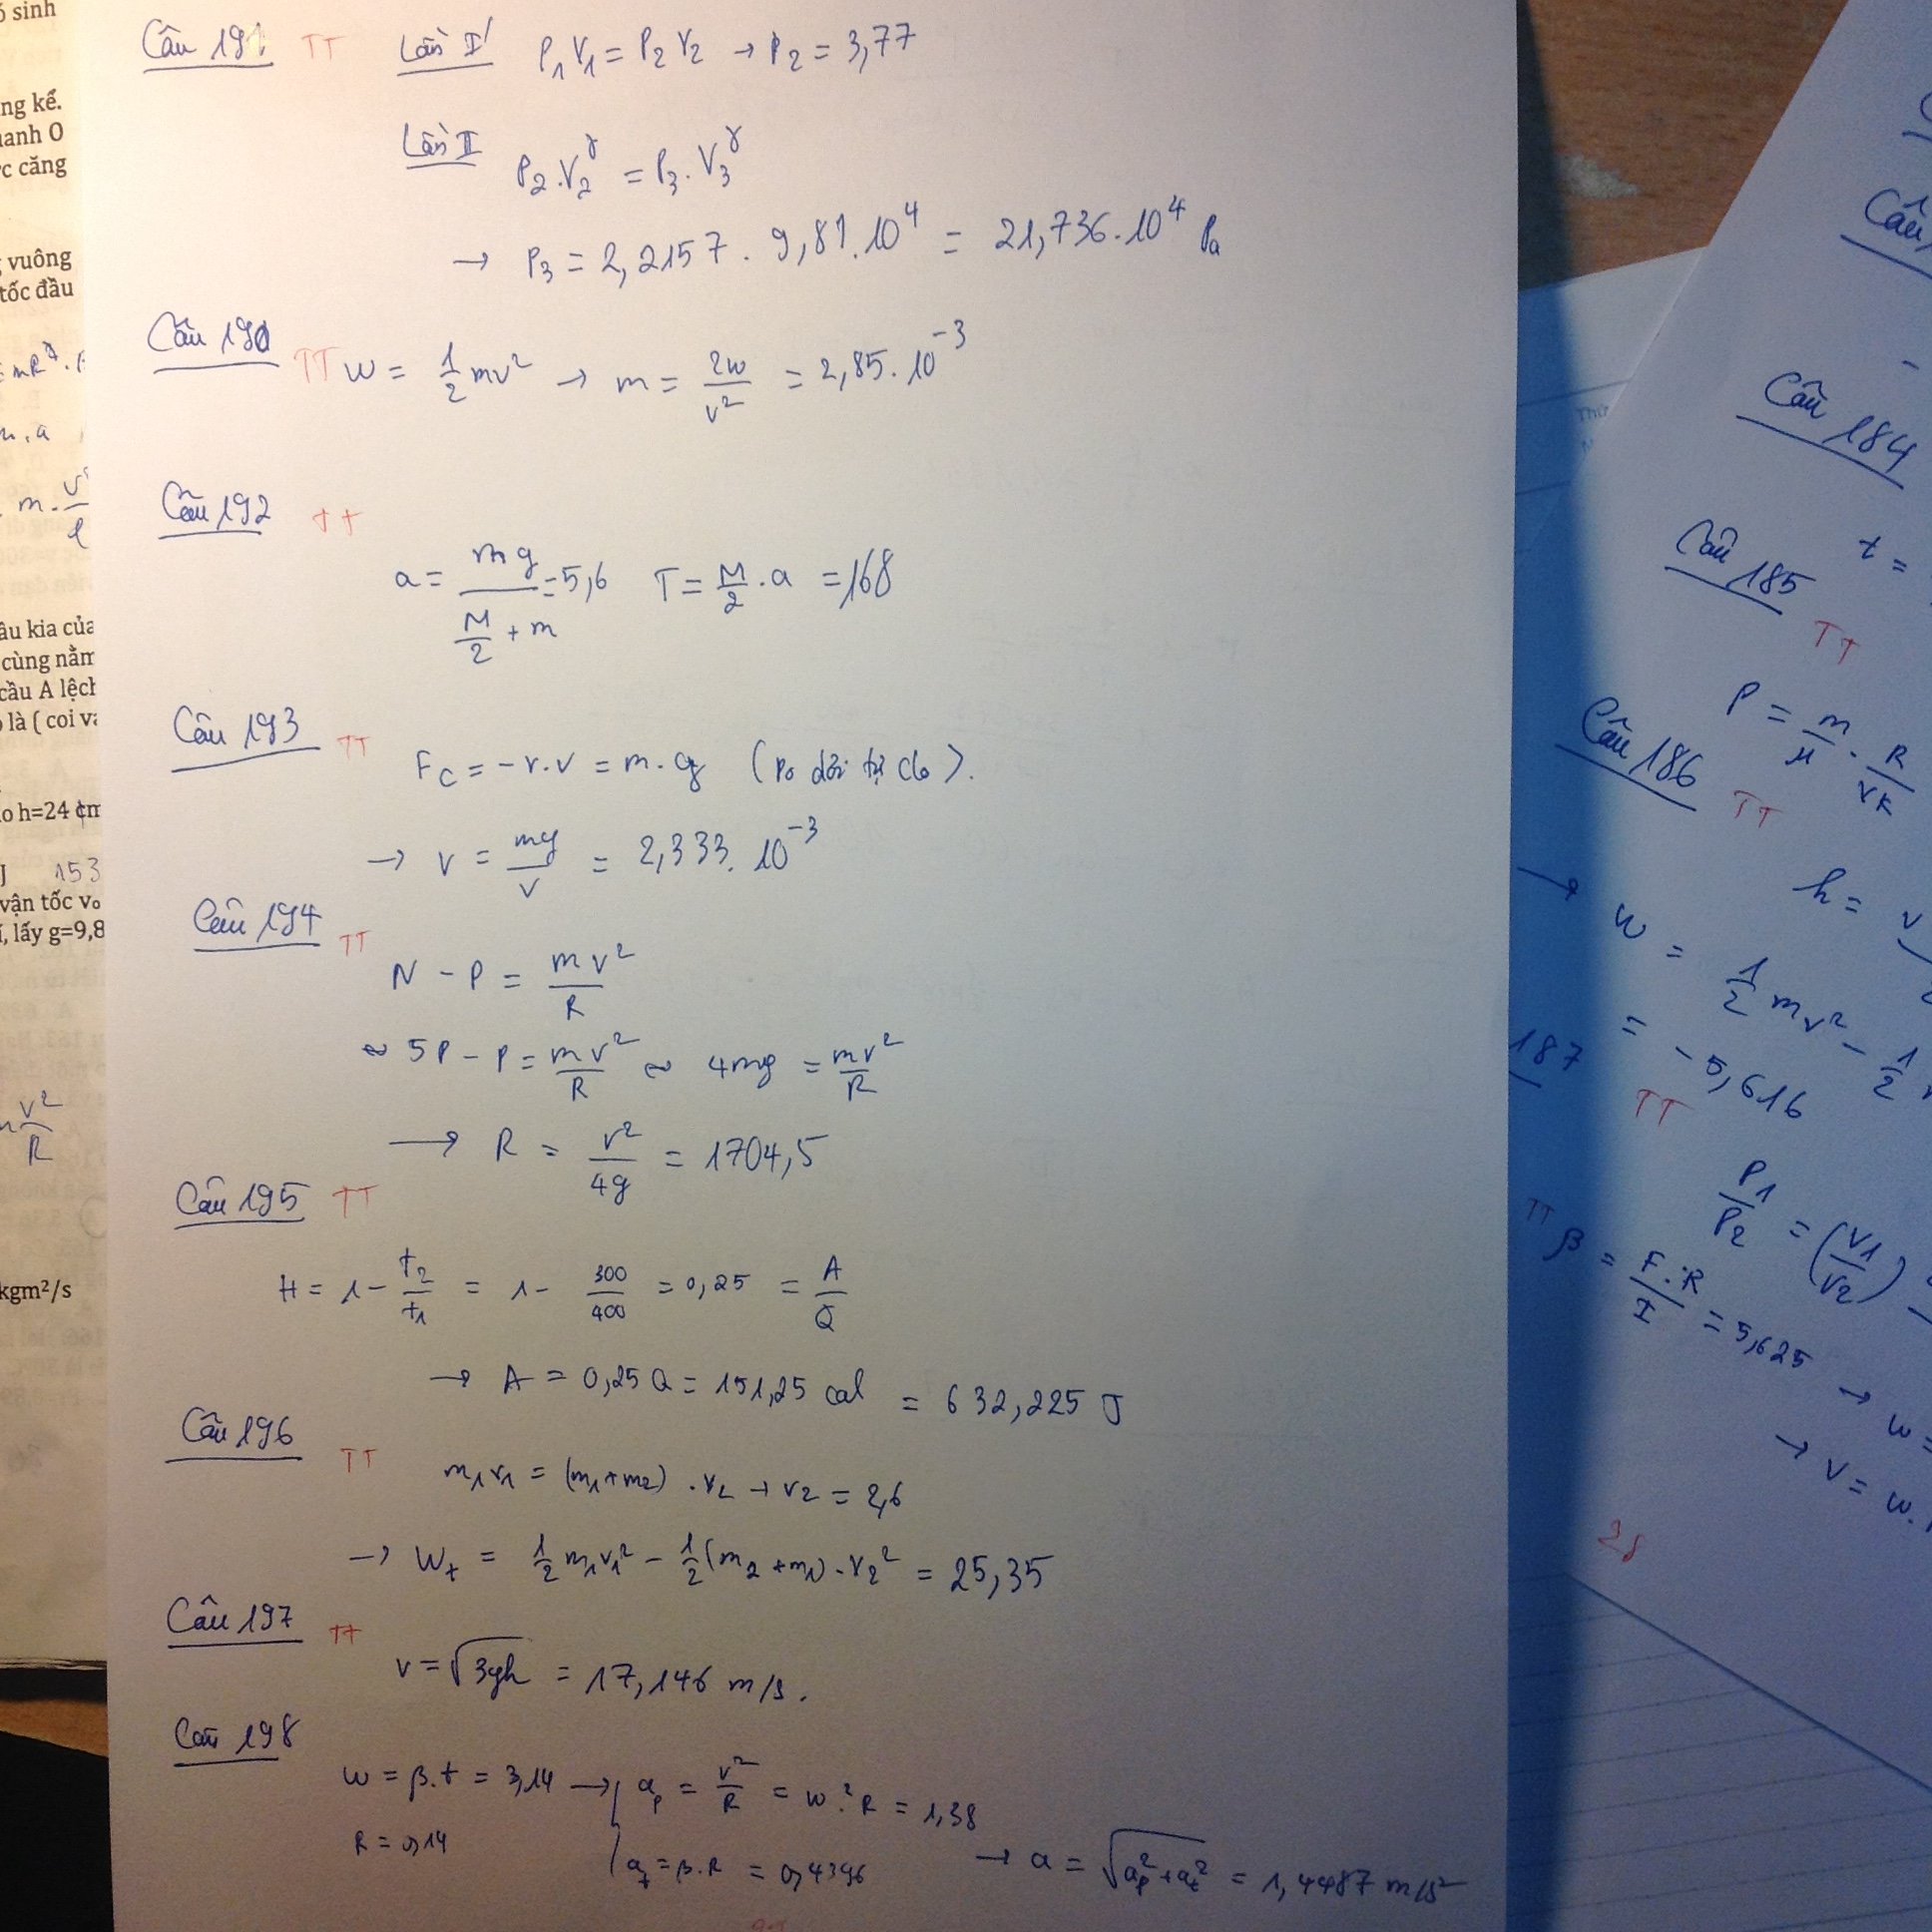 ó sinh
ng kể.
anh O
c căng
vuông
tốc đầu
m.a
m. v²/ℓ
âu kia của
cùng nằm
cầu A lệch
là ( coi và
o h=24 cm
J 153
vận tốc v₀
, lấy g=9,8
v²/R
kgm²/s
Câu 191 TT Lần I P₁V₁ = P₂V₂ → P₂ = 3,77
Lần II P₂.V₂^γ = P₃.V₃^γ
→ P₃ = 2,2157 . 9,81.10⁴ = 21,736.10⁴ Pa
Câu 190 TT W = 1/2 mv² → m = 2W/v² = 2,85.10⁻³
Câu 192 TT
a = mg/(M/2 + m) = 5,6 T = M/2 . a = 168
Câu 193 TT
F_C = -r.v = m.g (rơi tự do).
→ v = mg/r = 2,333.10⁻³
Câu 194 TT
N - P = mv²/R
∾ 5P - P = mv²/R ∾ 4mg = mv²/R
→ R = v²/4g = 1704,5
Câu 195 TT
H = 1 - t₂/t₁ = 1 - 300/400 = 0,25 = A/Q
→ A = 0,25Q = 151,25 cal = 632,225 J
Câu 196 TT
m₁v₁ = (m₁+m₂).v₂ → v₂ = 2,6
→ W_t = 1/2 m₁v₁² - 1/2 (m₂+m₁).v₂² = 25,35
Câu 197 TT
v = √(3gh) = 17,146 m/s.
Câu 198
ω = β.t = 3,14 → a_p = v²/R = ω².R = 1,38
R = 0,14
a_t = β.R = 0,4396 → a = √(a_p²+a_t²) = 1,4487 m/s²
Câu
Câu 184
t =
Câu 185 TT
P = m/μ . R/VK
Câu 186 TT
h = v
→ W = 1/2 mv² - 1/2
= -5,616
187 TT
P₁/P₂ = (V₁/V₂)
TT β = F.R/I = 5,625 → ω =
→ v = ω.